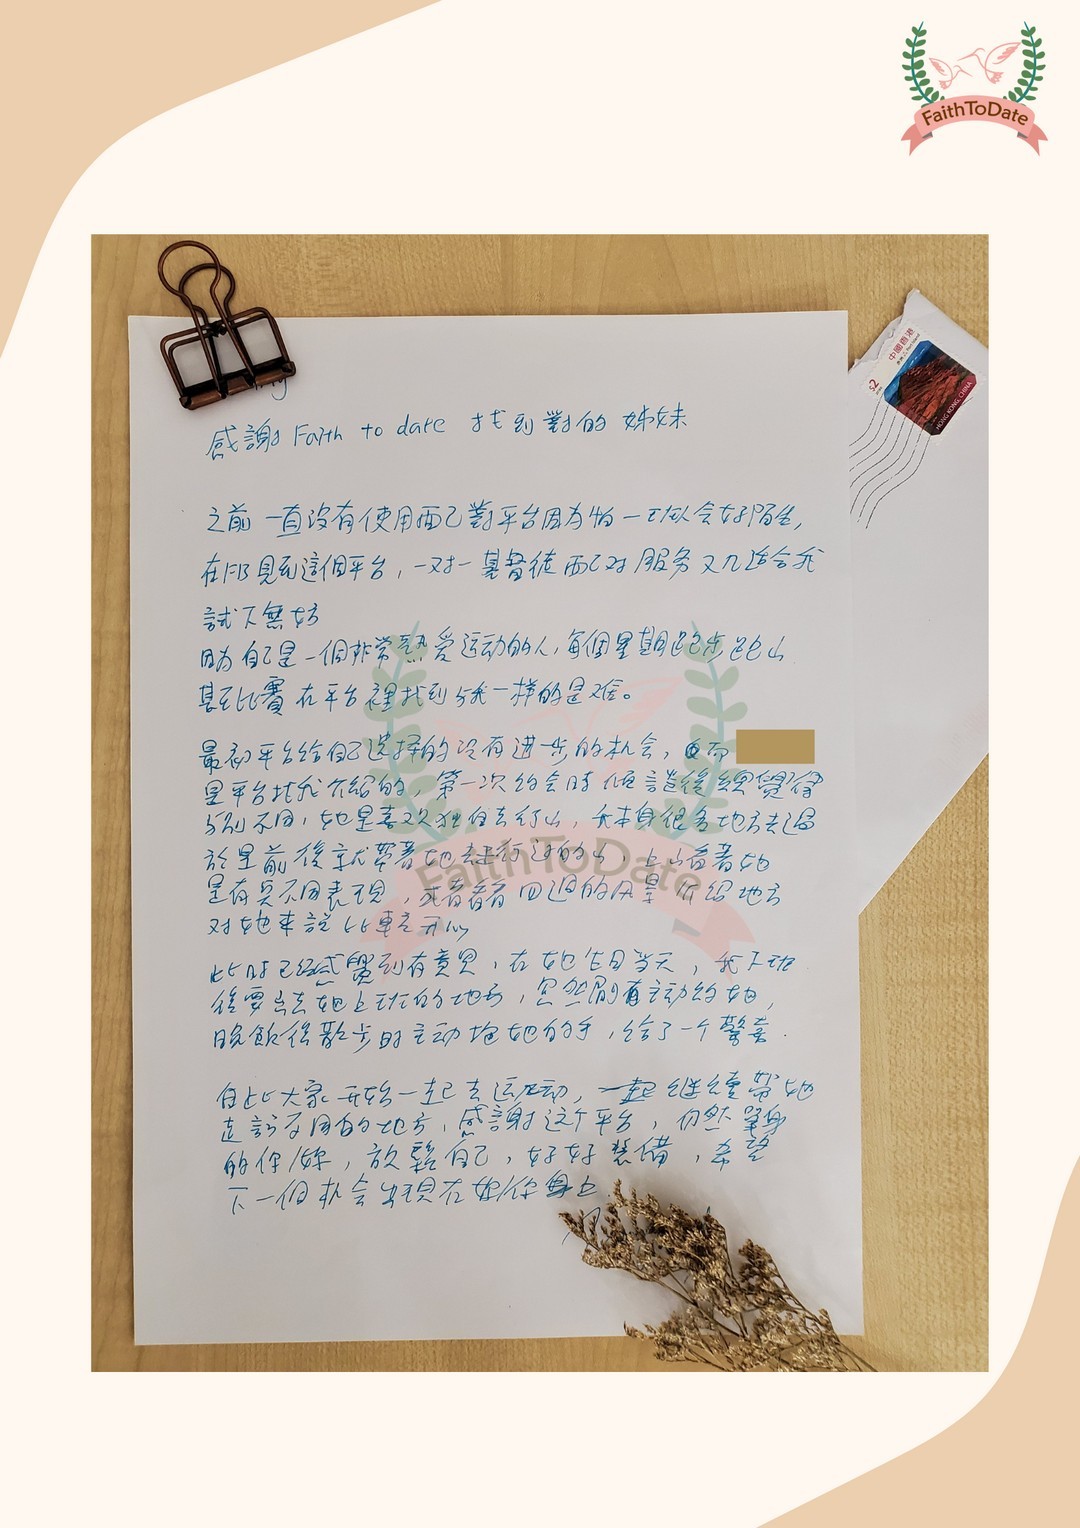 FaithToDate
中國香港
$2
HONG KONG, CHINA
感謝 Faith to date 找到對的姊妹
之前一直沒有使用配對平台因为怕一对一会好陌生,
在FB見到這個平台,一对一基督徒配对服务又几适合我
試下無妨
因为自己是一個非常熱爱运动的人,每個星期跑步跑山
甚至比賽在平台裡找到与我一样的是难。
最初平台給自己选择的沒有进一步的机会,
是平台比我介紹的,第一次约会時
不同,她是喜欢独自去行山,我本身很多地方去過
於是前後就带着她去行过的山,上山看着她
是有与不同表現,或者看着四週的风景介绍地方
对她来說比較开心
此時已经感覺到有意思,在她生日当天,我下班
後要去她上班的地方,忽然間有主动约她,
晚飯後散步時主动拖她的手,给了一个驚喜.
自此大家开始一起去运动,一起继续带她
走訪不同的地方,感謝这个平台,仍然單身
的你/妳,放鬆自己,好好裝備,希望
下一個机会出現在妳/你身上
FaithToDate